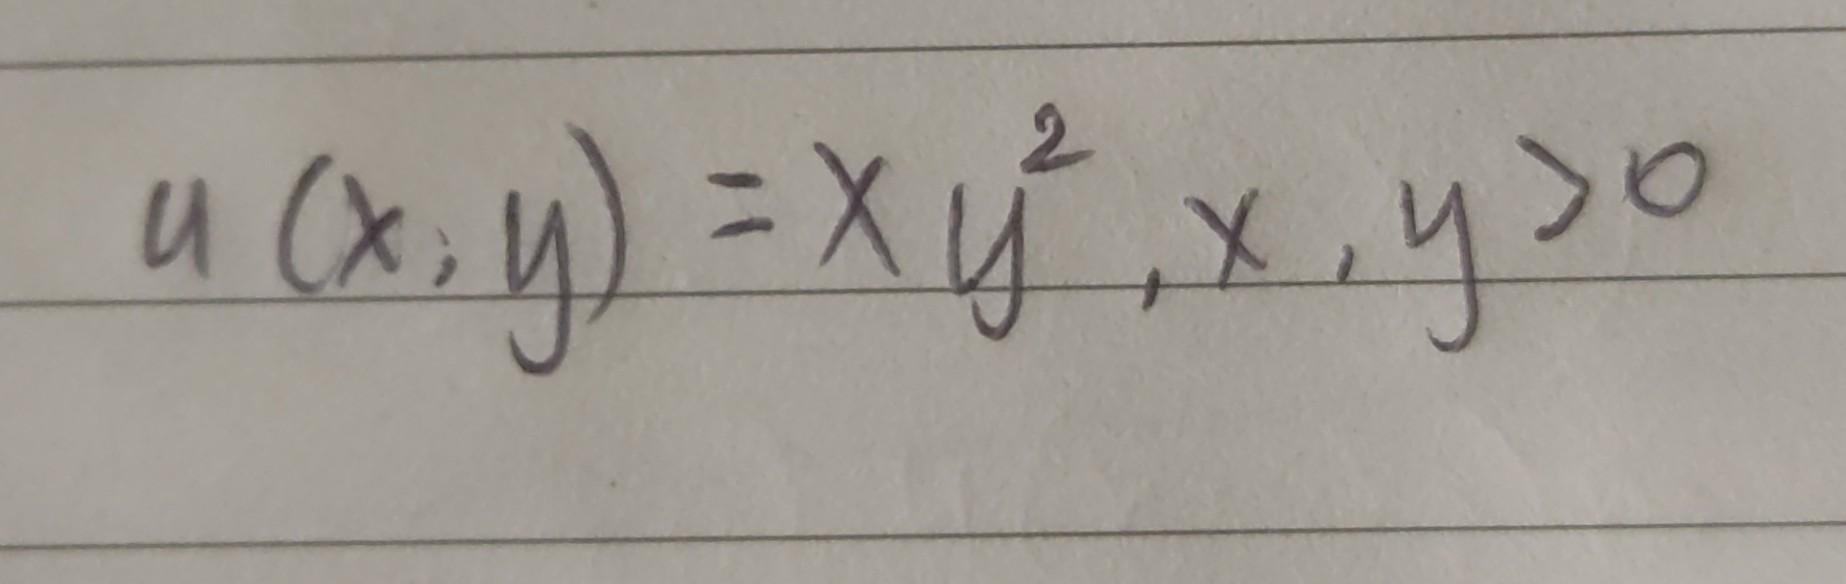 u(x; y) = xy², x, y > 0